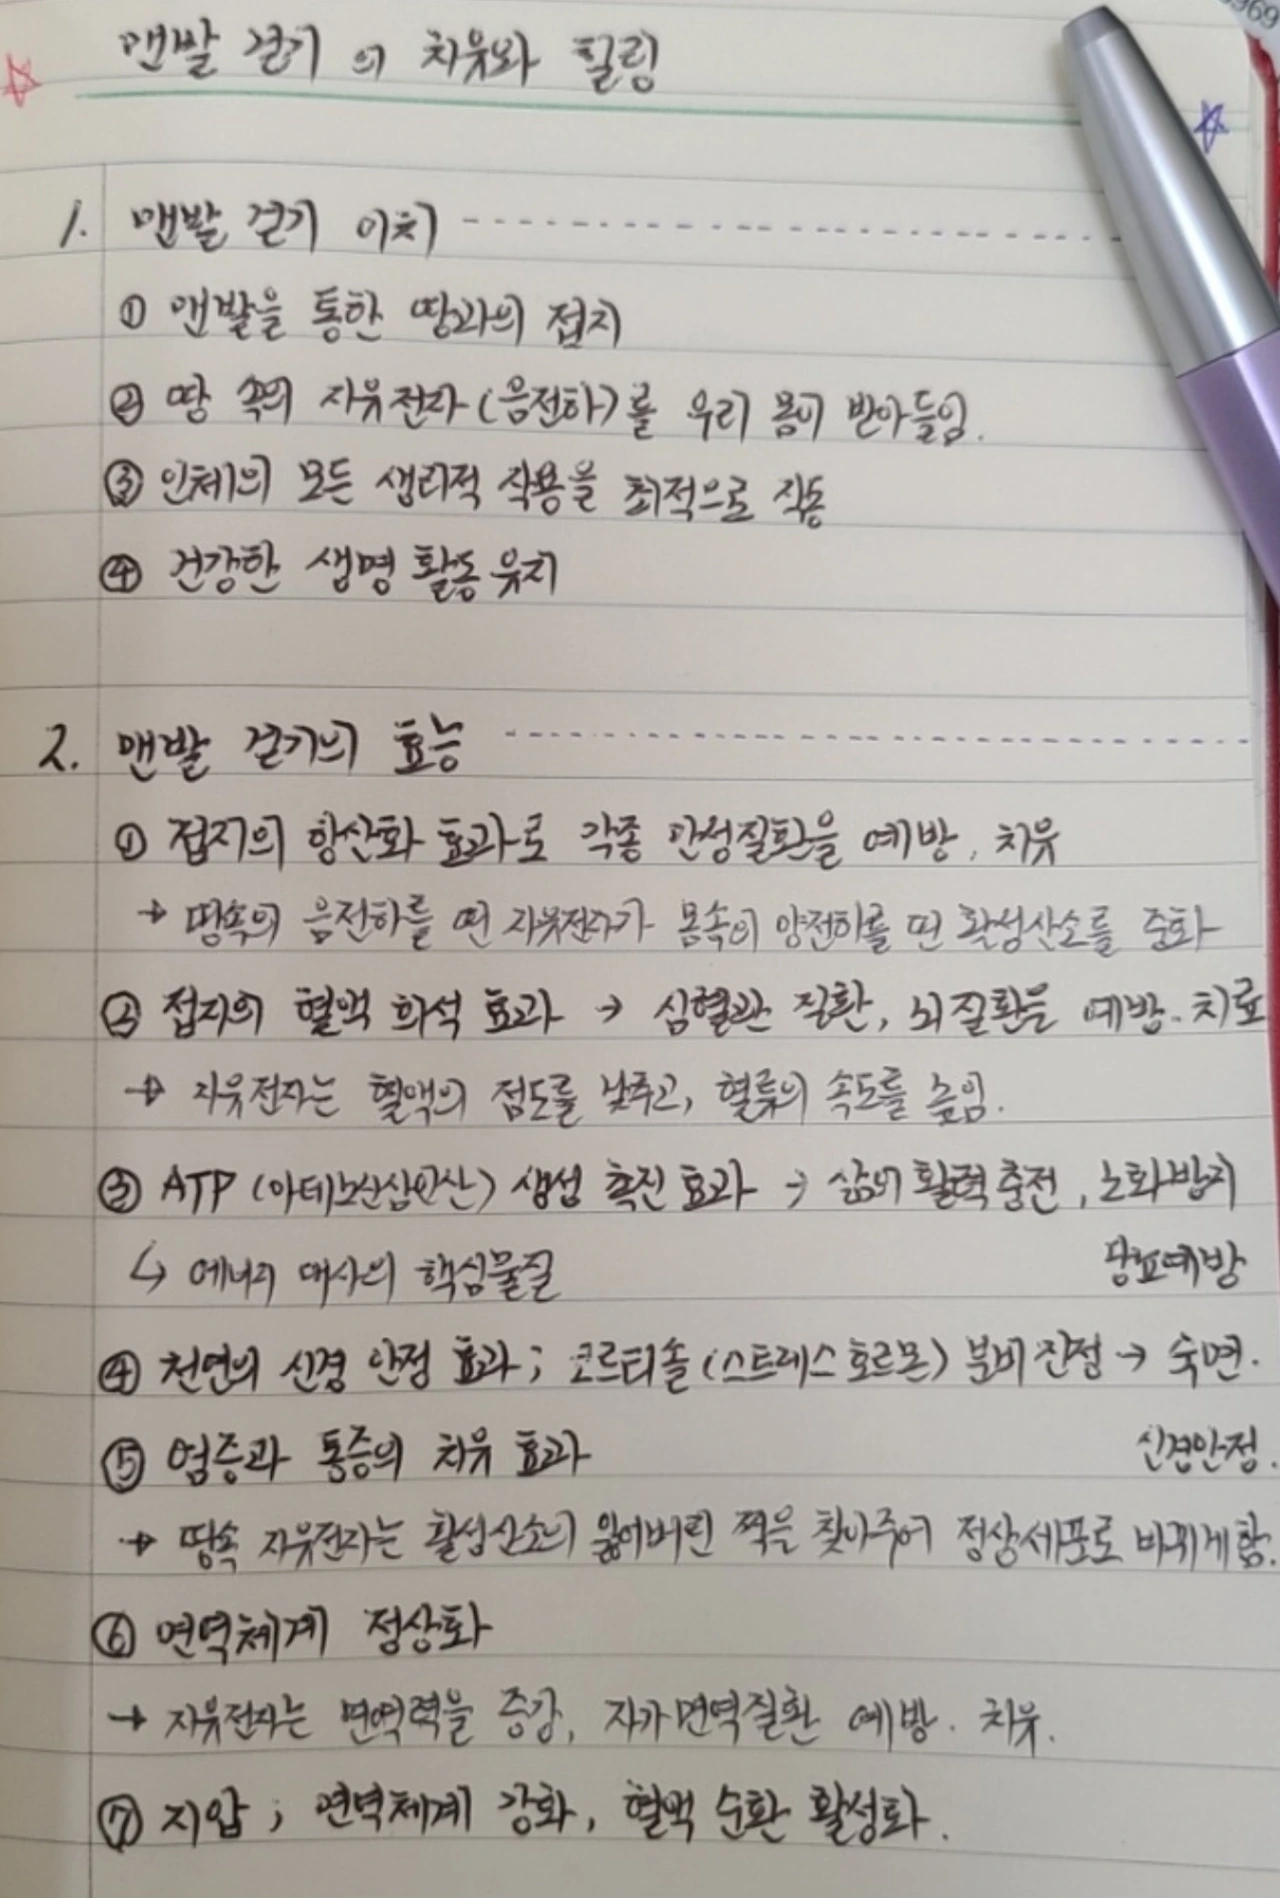 969
맨발 걷기의 치유와 힐링
1. 맨발 걷기 이치
① 맨발을 통한 땅과의 접지
② 땅 속의 자유전자(음전하)를 우리 몸이 받아들임.
③ 인체의 모든 생리적 작용을 최적으로 작동
④ 건강한 생명 활동 유지
2. 맨발 걷기의 효능
① 접지의 항산화 효과로 각종 만성질환을 예방, 치유
→ 땅속의 음전하를 띤 자유전자가 몸속의 양전하를 띤 활성산소를 중화
② 접지의 혈액 희석 효과 → 심혈관 질환, 뇌질환을 예방. 치료
→ 자유전자는 혈액의 점도를 낮추고, 혈류의 속도를 높임.
③ ATP (아데노신삼인산) 생성 촉진 효과 → 삶의 활력 충전, 노화방지
↳ 에너지 대사의 핵심물질 당뇨예방
④ 천연의 신경 안정 효과; 코르티솔(스트레스 호르몬) 분비 진정 → 숙면.
⑤ 염증과 통증의 치유 효과 신경안정.
→ 땅속 자유전자는 활성산소의 잃어버린 짝을 찾아주어 정상세포로 바뀌게함.
⑥ 면역체계 정상화
→ 자유전자는 면역력을 증강, 자가면역질환 예방. 치유.
⑦ 지압; 면역체계 강화, 혈액 순환 활성화.